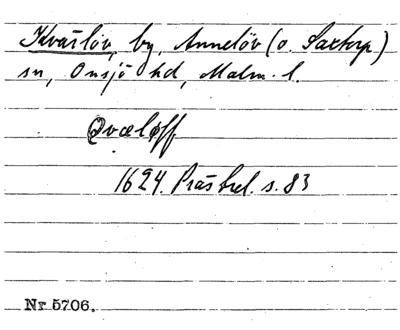 Kvärlöv, by, Annelöv (o. Saxtorp)
sn, Onsjö hd, Malm. l.
Qvæløff
1624. Präst rel. s. 83
Nr 5706.